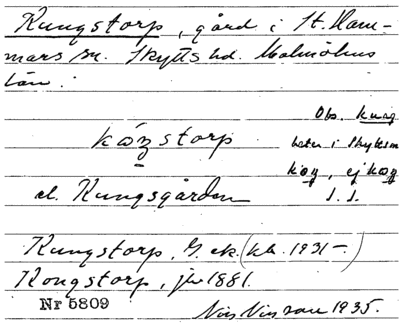 Kungstorp, gård i St. Ham-
mars sn. Skytts hd. Malmöhus
län.
Obs. kung
kóŋstorp heter i Skytts
koŋ, ej koŋ
el. Kungsgården
Kungstorp, G. ek. (kb. 1931-)
Kongstorp, jb 1881.
Nr 5809
Nils Nilsson 1935.